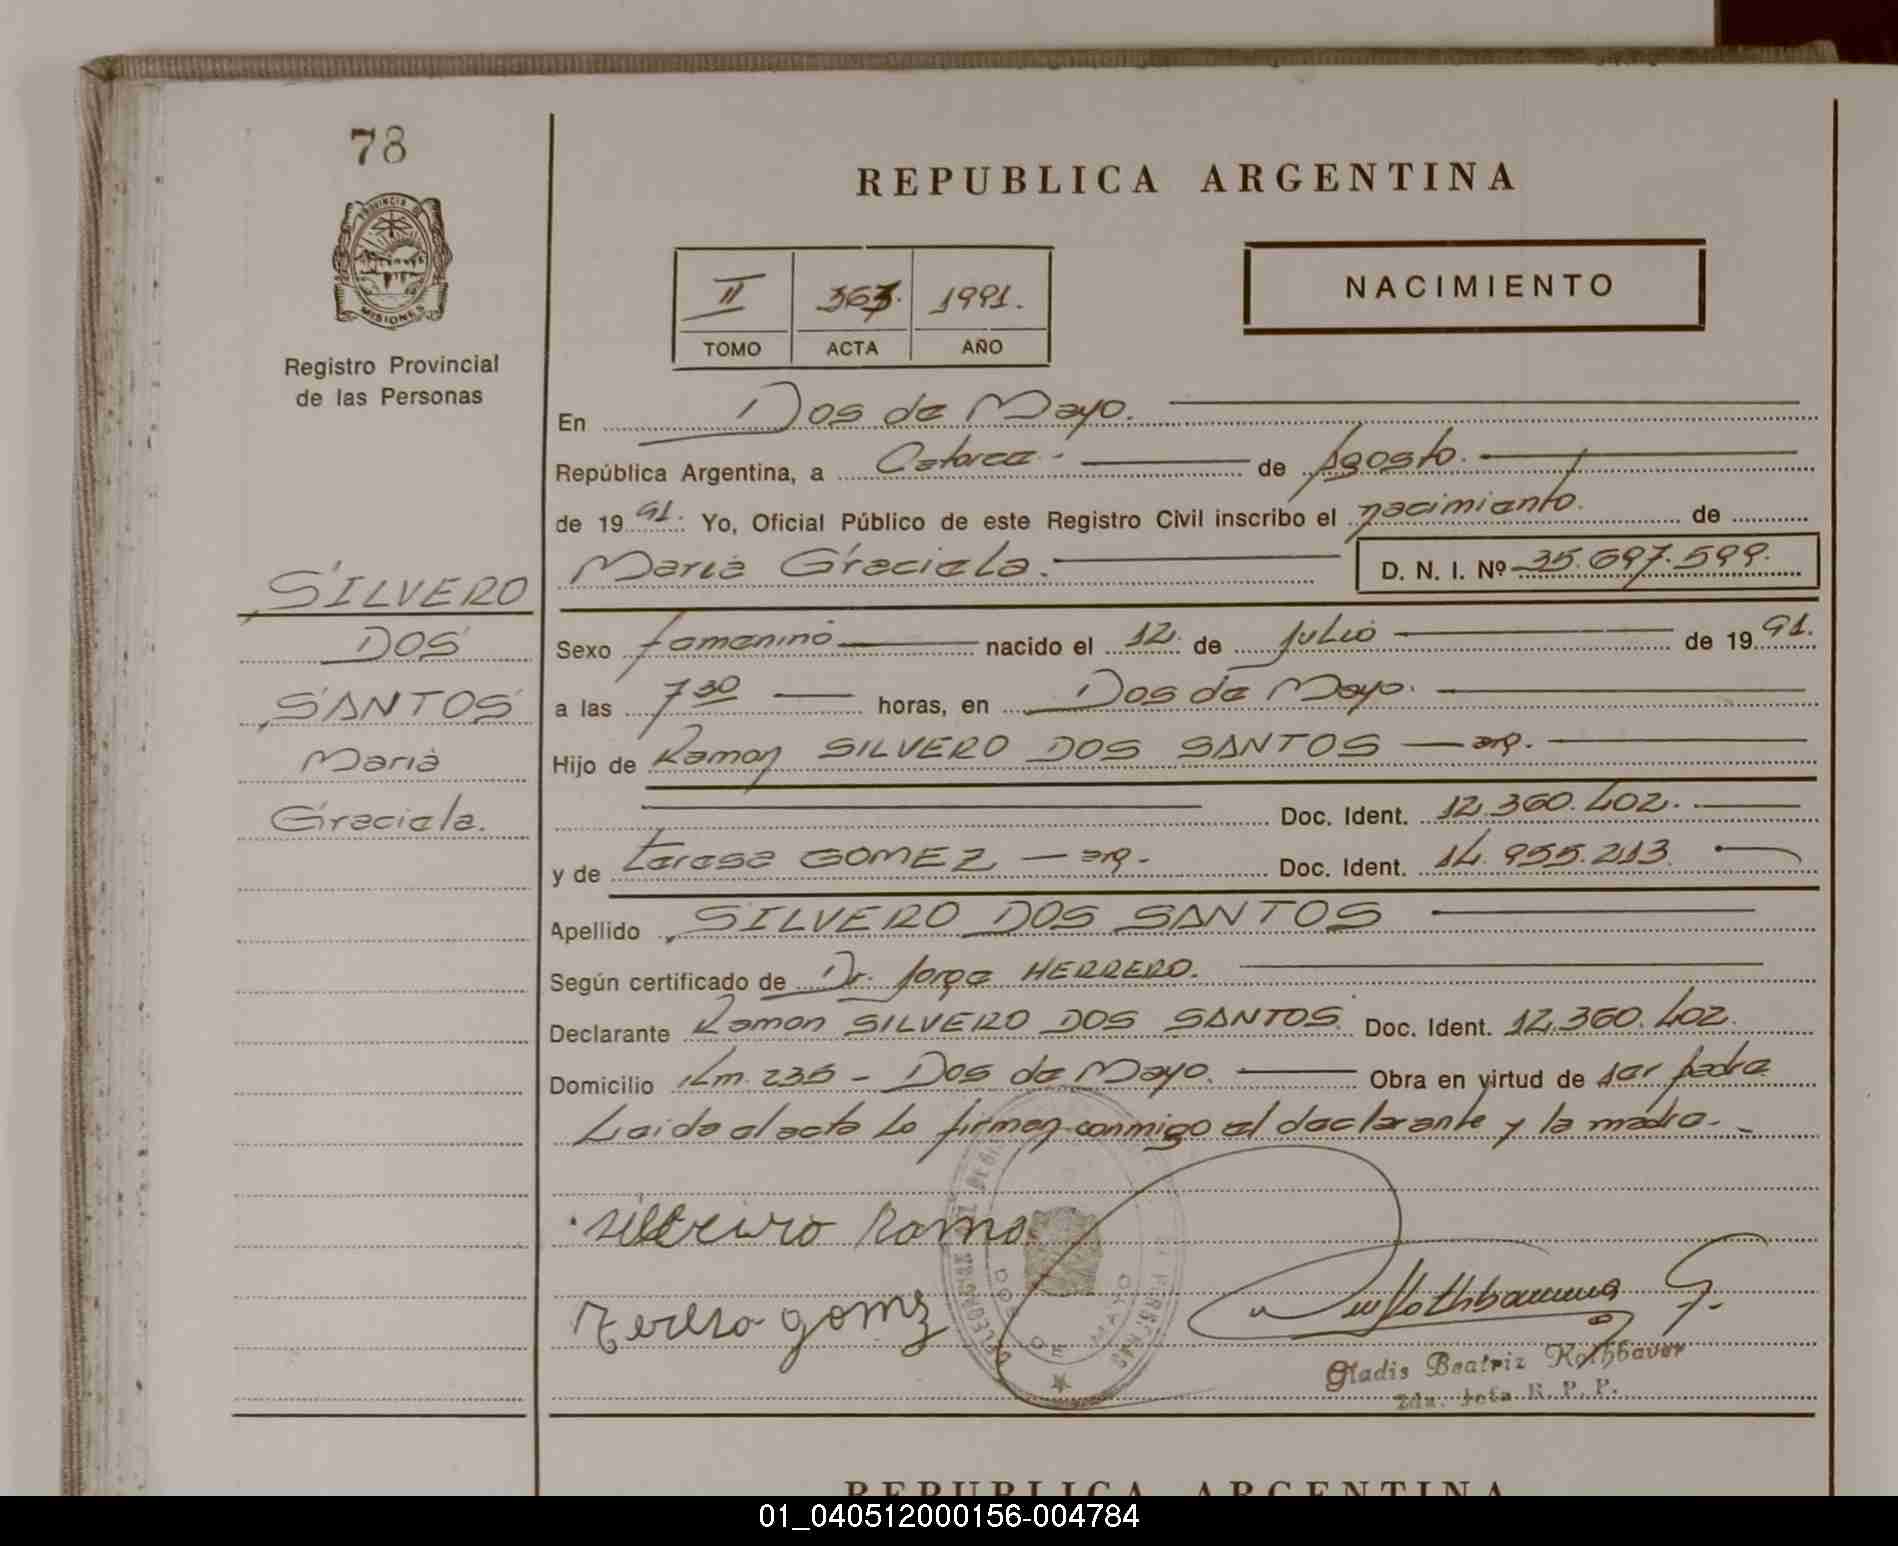 78
PROVINCIA DE
MISIONES
Registro Provincial
de las Personas
REPUBLICA ARGENTINA
II 1991.
TOMO ACTA AÑO
NACIMIENTO
En Dos de Mayo.
República Argentina, a Catorce.- de Agosto.
de 1991. Yo, Oficial Público de este Registro Civil inscribo el nacimiento. de
Maria Graciela. D. N. I. Nº 35.697.599.
SILVERO
DOS
SANTOS
Maria
Graciela.
Sexo femenino nacido el 12. de Julio de 1991.
a las 7 30 horas, en Dos de Mayo.
Hijo de Ramon SILVERO DOS SANTOS — arg.
Doc. Ident. 12.360.402.
y de Teresa GOMEZ — arg.- Doc. Ident. 14.955.213.
Apellido SILVERO DOS SANTOS
Según certificado de Dr. Jorge HERRERO.
Declarante Ramon SILVERO DOS SANTOS. Doc. Ident. 12.360.402.
Domicilio Km. 235 - Dos de Mayo. Obra en virtud de ser padre
Leida el acta lo firman conmigo el declarante y la madre.-
Ramo
Teresa gomez
DOS DE MAYO
Gladis Beatriz Rothbauer
2da. Jefa R. P. P.
REPUBLICA ARGENTINA
01_040512000156-004784